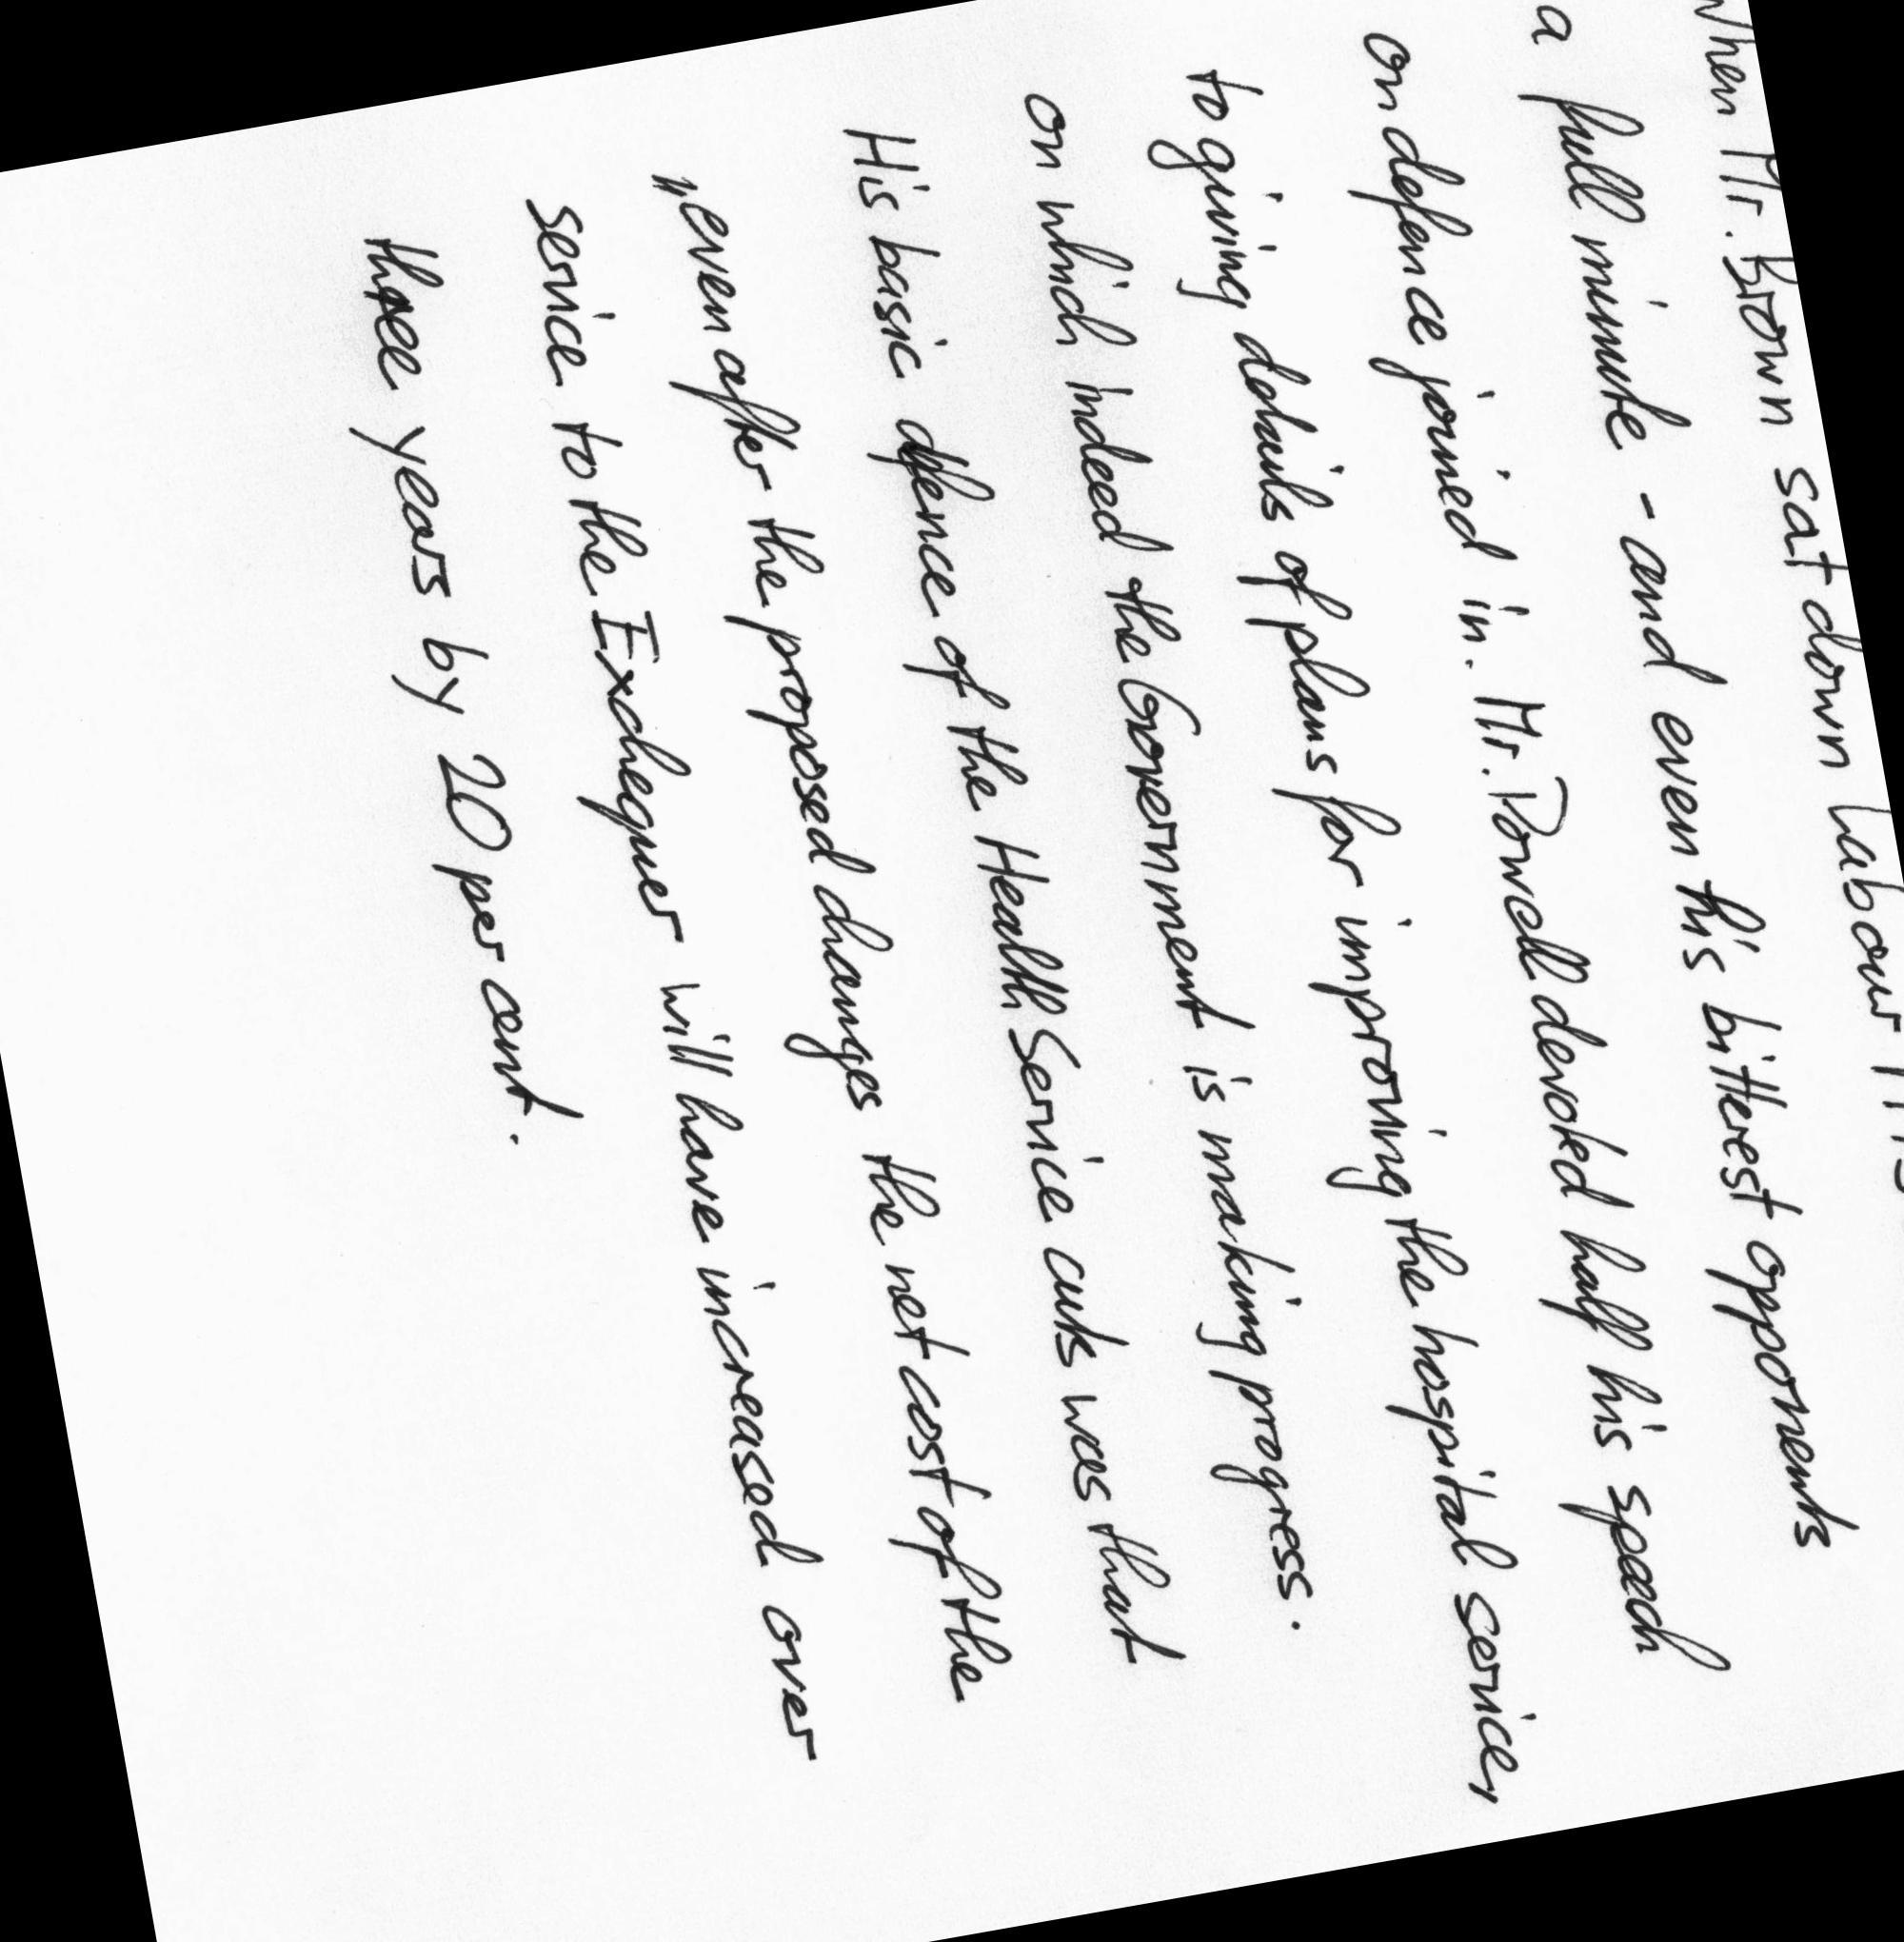 When Mr. Brown sat down Labour
a full minute - and even his bitterest opponents
on defence joined in. Mr. Powell devoted half his speech
to giving details of plans for improving the hospital service,
on which indeed the Government is making progress.
His basic defence of the Health Service cuts was that
"even after the proposed changes the net cost of the
service to the Exchequer will have increased over
three years by 20 per cent.